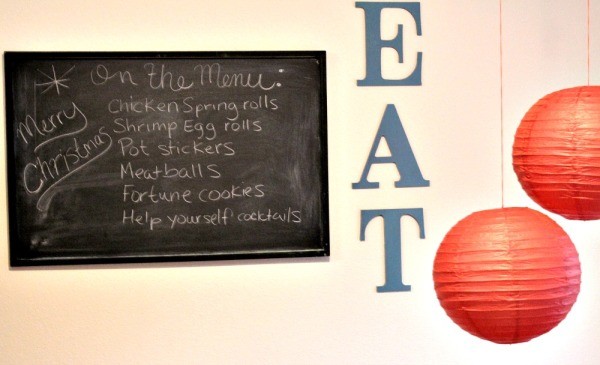 On the Menu:
Merry
Christmas
Chicken Spring rolls
Shrimp Egg rolls
Pot stickers
Meatballs
Fortune cookies
Help yourself cocktails
EAT